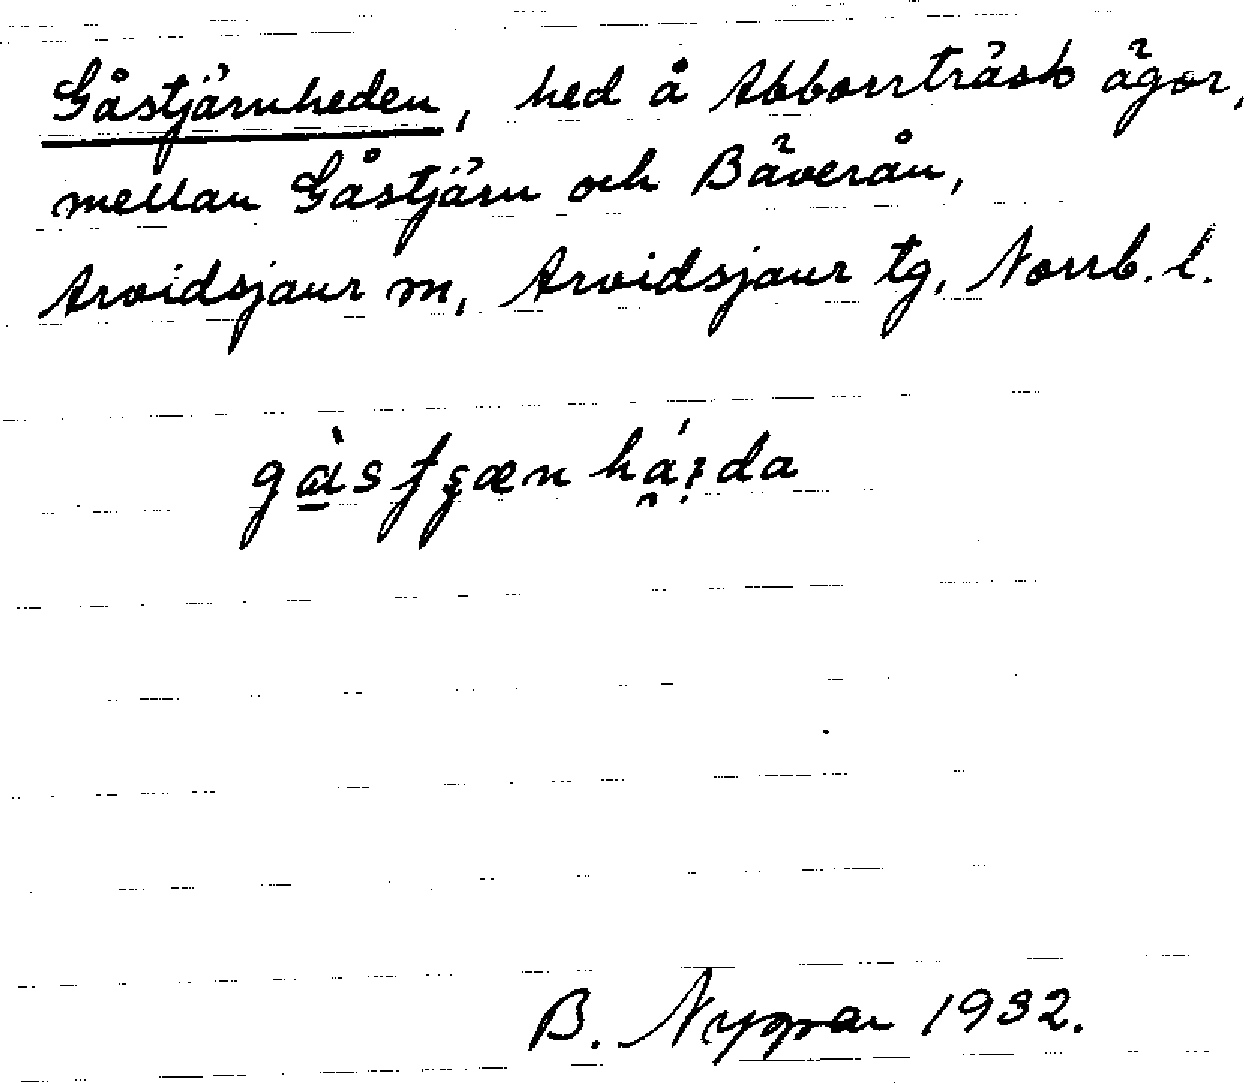 Gåstjärnheden, hed å Abborrträsk ägor,
mellan Gåstjärn och Bäverån,
Arvidsjaur m, Arvidsjaur tg, Norrb. l.
B. 1932.